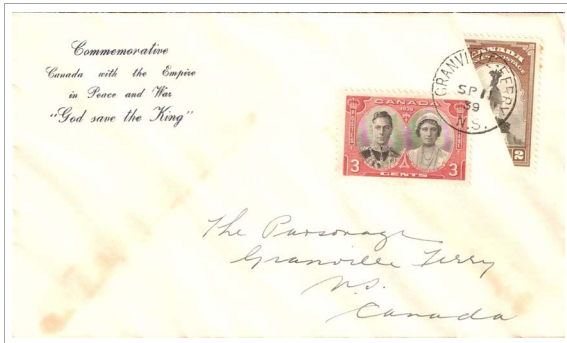 Commemorative
Canada with the Empire
in Peace and War
"God save the King"
CANADA
3 CENTS 3
CANADA
2
GRANVILLE FERRY
SP 1
39
N.S.
The Parsonage
Granville Ferry
N.S.
Canada